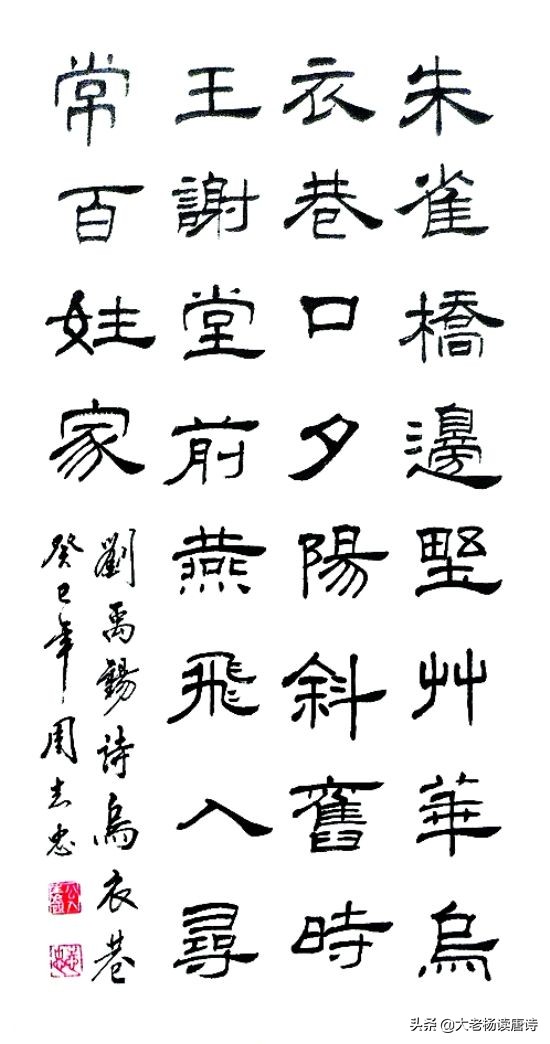 朱雀橋邊墅艸華烏
衣巷口夕陽斜舊時
王謝堂前燕飛入尋
常百姓家
劉禹錫詩烏衣巷
癸巳年周志忠
头条 @大老杨读唐诗